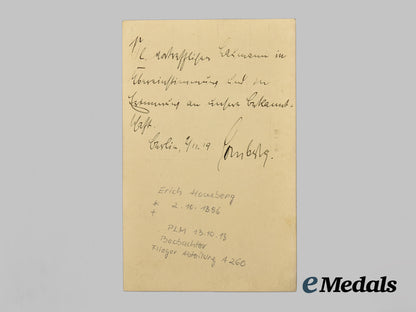 in
Übereinstimmung und zur
Erinnerung an unsere Bekannt-
schaft.
Berlin, 19
Homberg.
Erich Homberg
* 2.10.1886
+
PLM 13.10.18
Beobachter
Flieger Abteilung A 260
eMedals